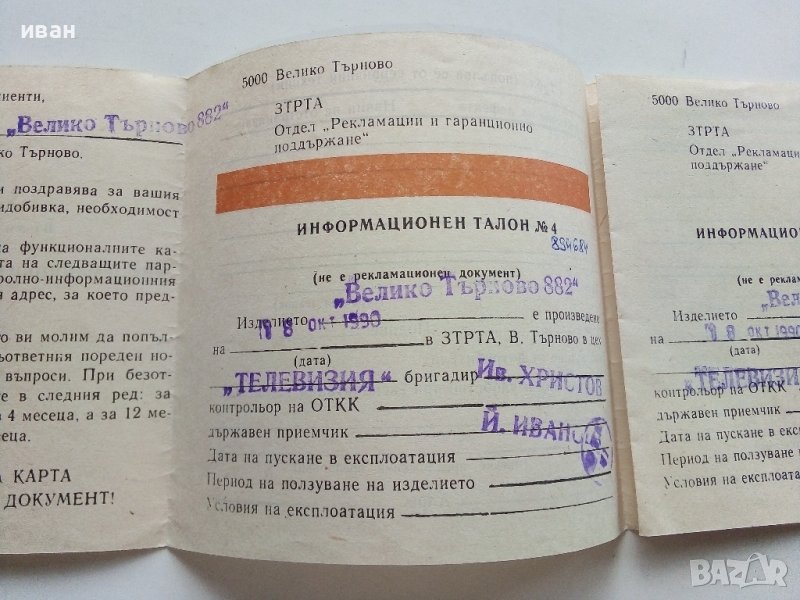 иван
иенти,
„Велико Търново 882“
ко Търново.
и поздравява за вашия
идобивка, необходимост
а функционалните ка-
та на следващите пар-
ролно-информационния
я адрес, за което пред-
го ви молим да попъл-
ъответния пореден но-
въпроси. При безот-
те в следния ред: за
а 4 месеца, а за 12 ме-
сеца.
А КАРТА
ДОКУМЕНТ!
5000 Велико Търново
ЗТРТА
Отдел „Рекламации и гаранционно
поддържане“
ИНФОРМАЦИОНЕН ТАЛОН № 4
894684
(не е рекламационен документ)
„Велико Търново 882“
Изделието е произведено
на 18 ОКТ 1990 в ЗТРТА, В. Търново в цех
(дата)
„ТЕЛЕВИЗИЯ“ бригадир Ив. ХРИСТОВ
контрольор на ОТКК
държавен приемчик Й. ИВАНОВ
Дата на пускане в експлоатация
Период на ползуване на изделието
Условия на експлоатация
5000 Велико Търново
ЗТРТА
Отдел „Рекламаци
поддържане“
ИНФОРМАЦИО
(не е рекл
„Вел
Изделието
на 18 ОКТ 1990
(дата)
„ТЕЛЕВИЗИЯ
контрольор на ОТКК
държавен приемчик
Дата на пускане в експ
Период на ползуване н
Условия на експлоата
BAZAR